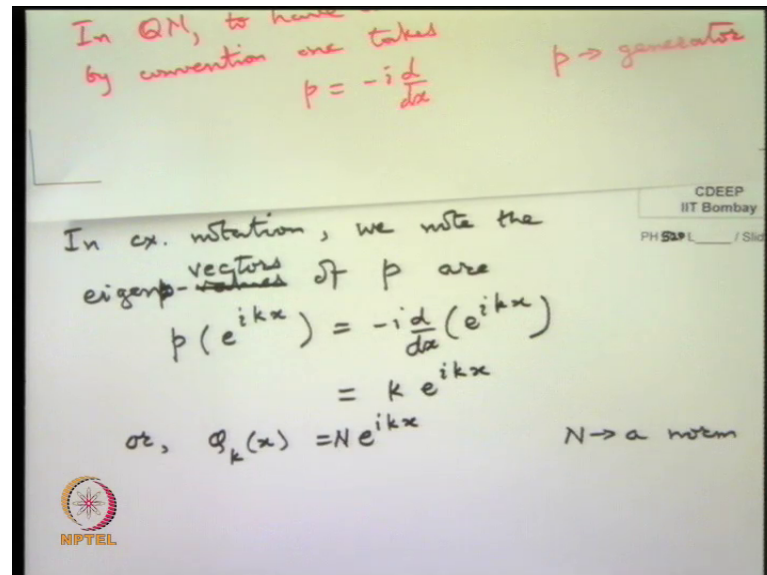 In QM, to have
by convention one takes
p = -i d/dx
p → generator
CDEEP
IIT Bombay
PH 520 L____ / Slid
In cx. notation, we note the
eigen-vectors of p are
p(e^{ikx}) = -i d/dx (e^{ikx})
= k e^{ikx}
or, φ_k(x) = N e^{ikx}
N → a norm
NPTEL